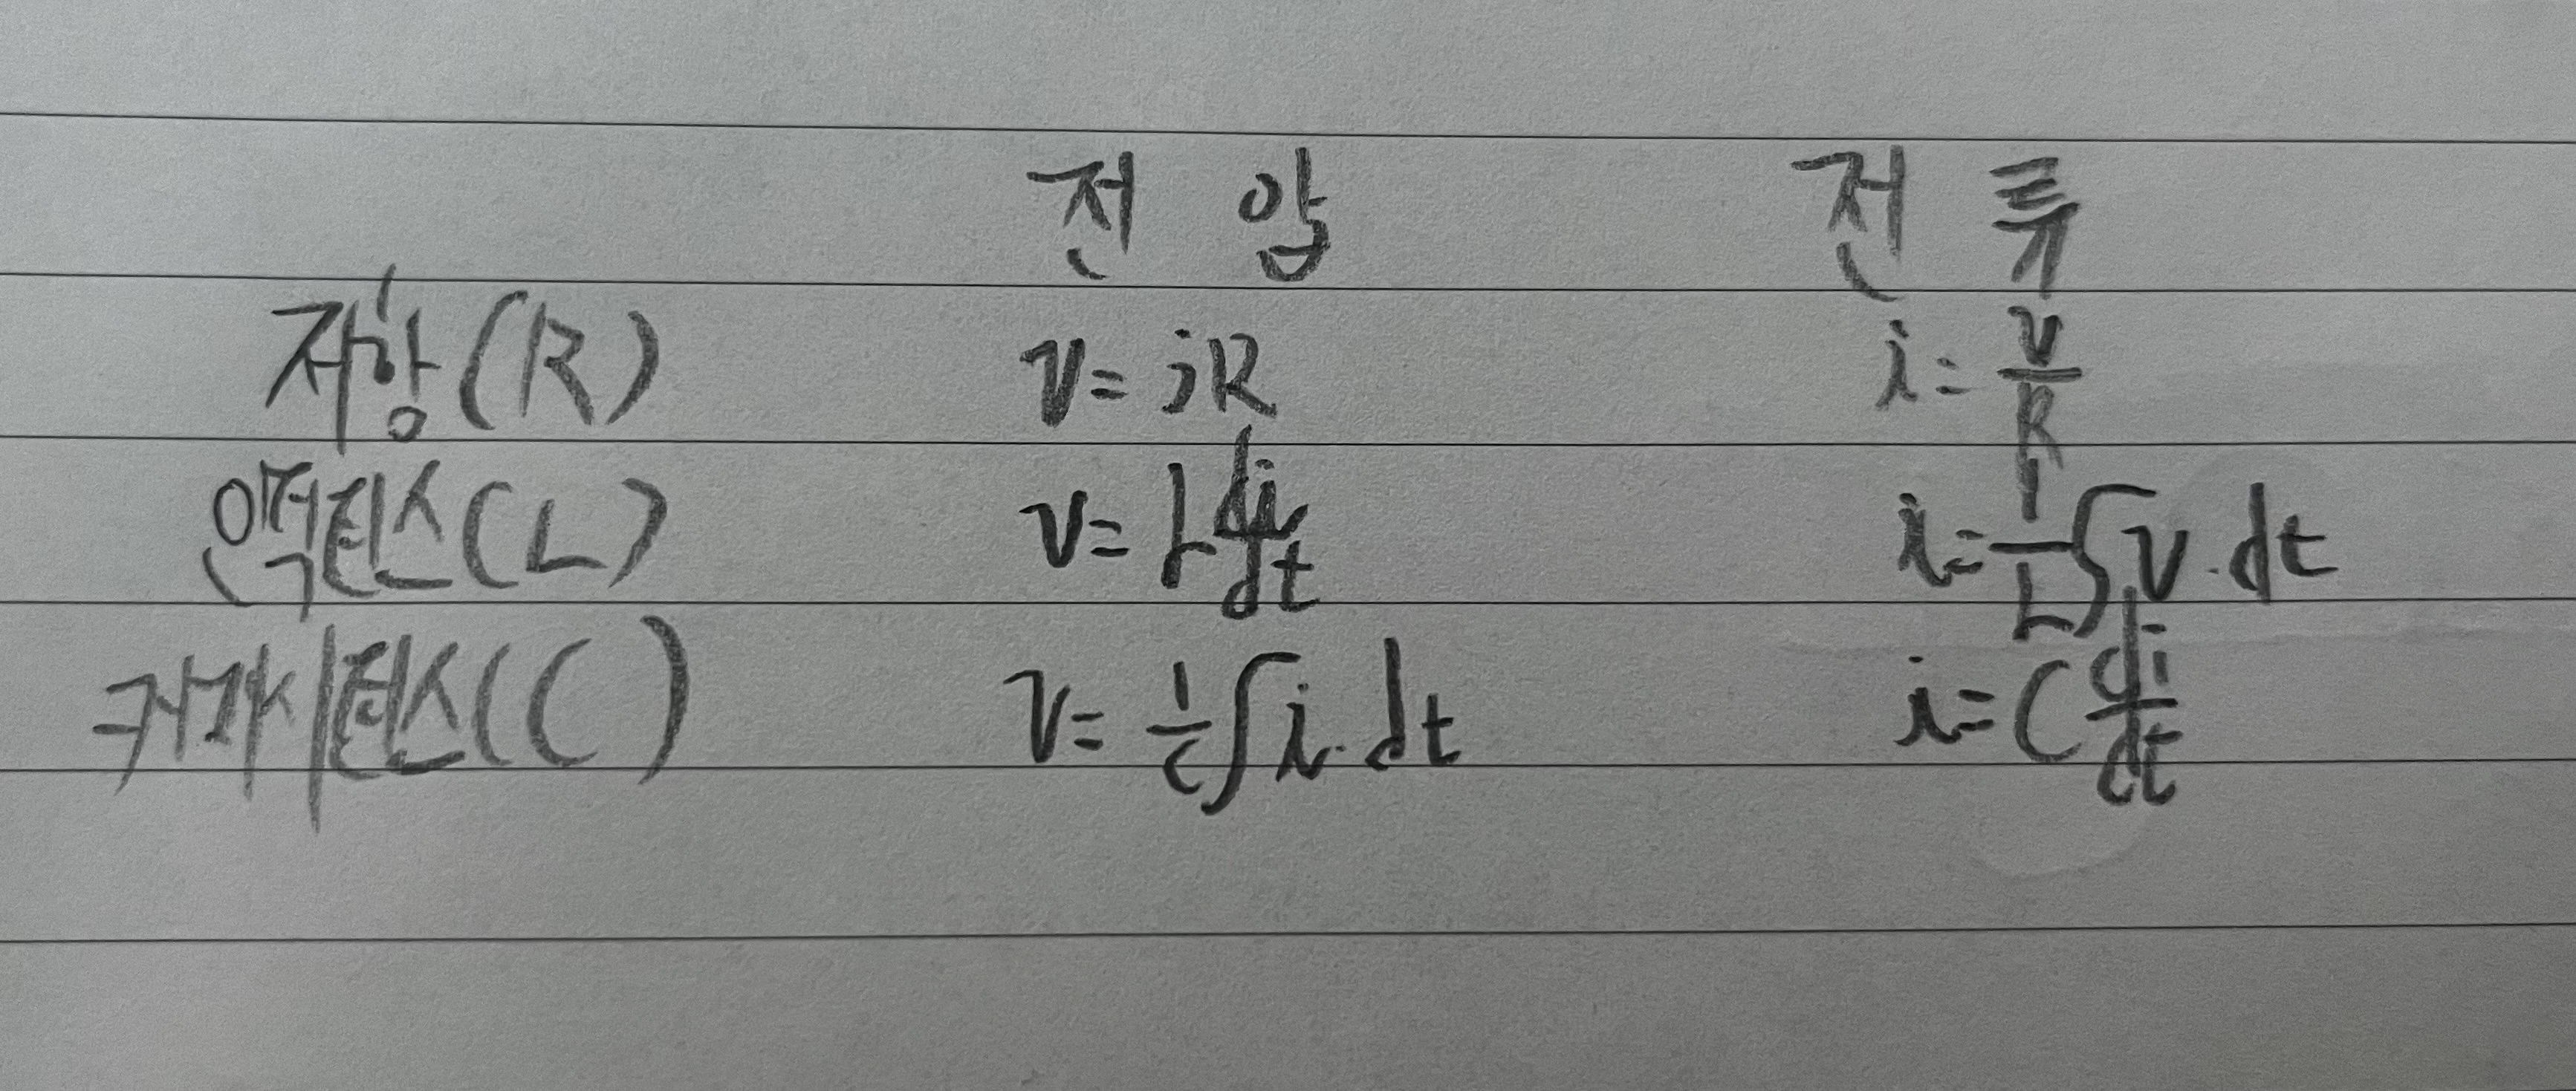 전압 전류
저항(R) v=iR i=v/R
인덕턴스(L) v=L di/dt i=1/L∫v·dt
커패시턴스(C) v=1/C∫i·dt i=C di/dt